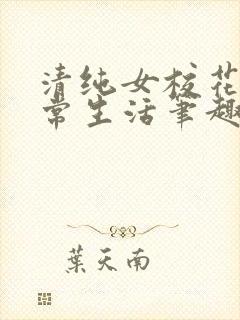 清纯女校花
常生活笔趣
葉天南